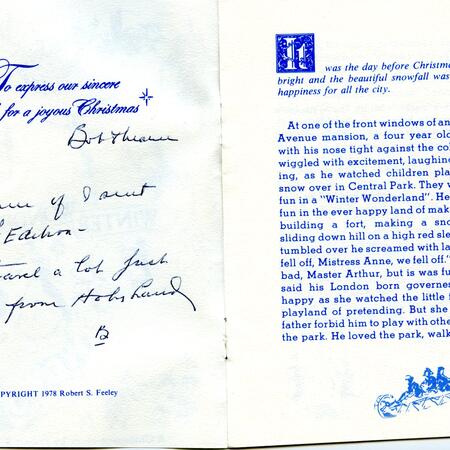 To express our sincere
for a joyous Christmas
Bob
of I sent
Edition-
a lot just
from Holy Land
B
PYRIGHT 1978 Robert S. Feeley
It was the day before Christm
bright and the beautiful snowfall was
happiness for all the city.
At one of the front windows of an
Avenue mansion, a four year old
with his nose tight against the col
wiggled with excitement, laughin
ing, as he watched children pla
snow over in Central Park. They w
fun in a "Winter Wonderland". He
fun in the ever happy land of mak
building a fort, making a sno
sliding down hill on a high red sle
tumbled over he screamed with la
fell off, Mistress Anne, we fell off."
bad, Master Arthur, but is was fu
said his London born governes
happy as she watched the little f
playland of pretending. But she
father forbid him to play with othe
the park. He loved the park, walk